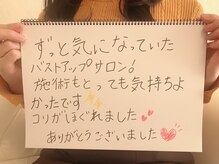 ずっと気になっていた
バストアップサロン!
施術もとっても気持ちよ
かったです
コリがほぐれました
ありがとうございました